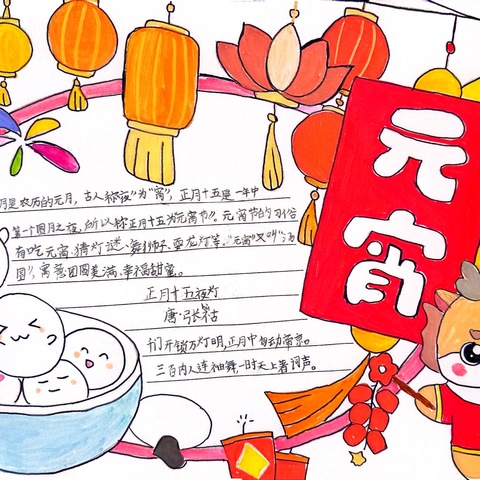 元宵
月是农历的元月，古人称夜“为“宵”，正月十五是一年中
第一个圆月之夜，所以称正月十五为元宵节”。元宵节的习俗
有吃元宵、猜灯谜、舞狮子、耍龙灯等。“元宵”又叫“汤
圆”，寓意团圆美满、幸福甜蜜。
正月十五夜灯
唐·张祜
门开锁万灯明，正月中旬动帝京。
三百内人连袖舞，一时天上著词声。